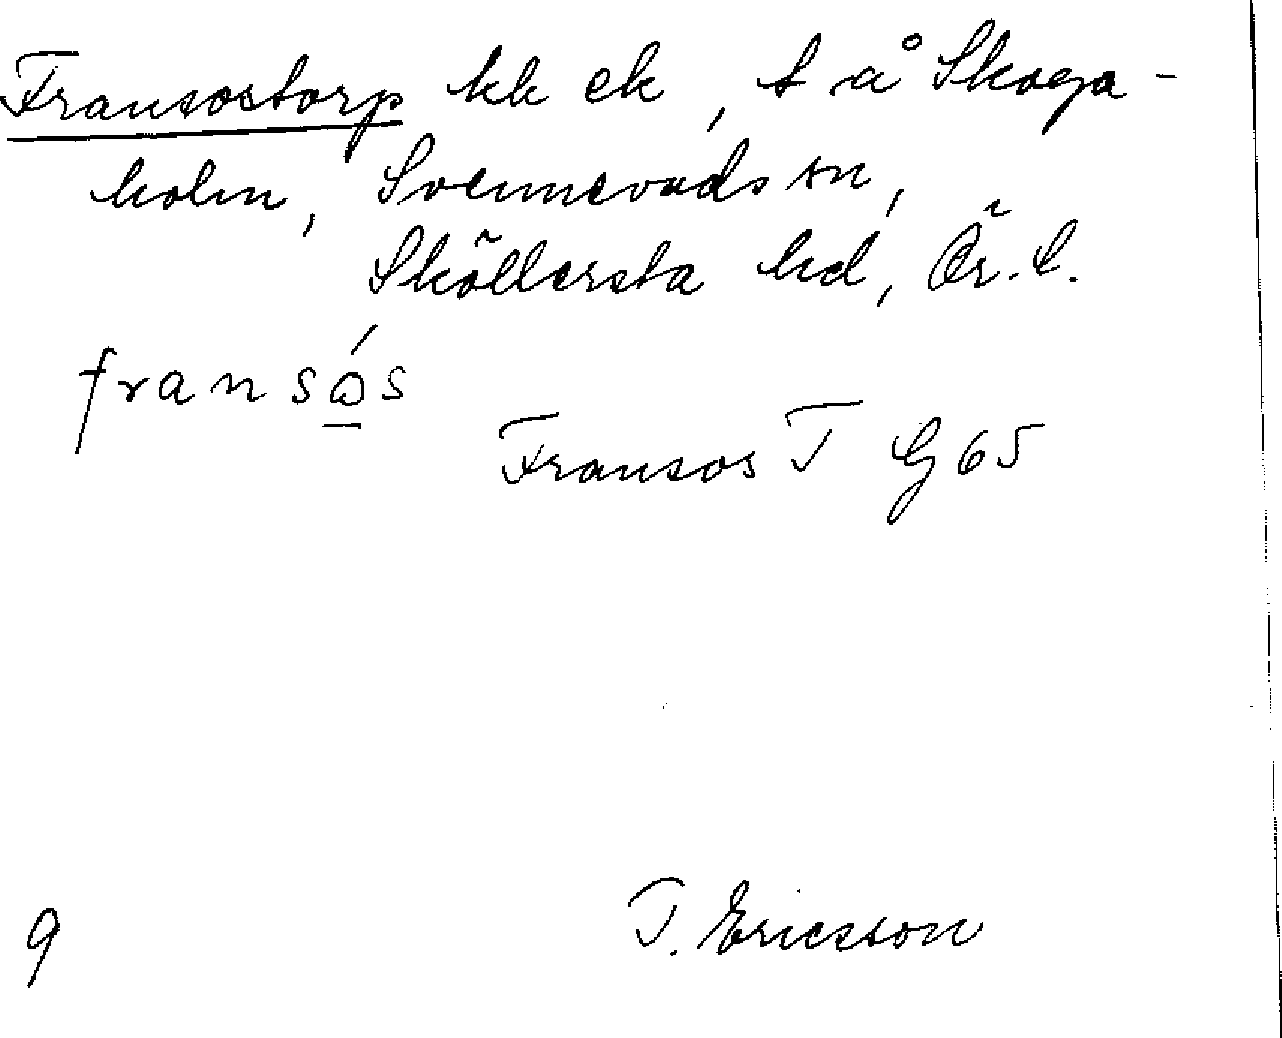 Fransostorp kk ek, t å Skoga-
holm, Svennevads sn,
Sköllersta hd, Ör. l.
fransó̱s
Fransos T G 65
T. Ericsson
9